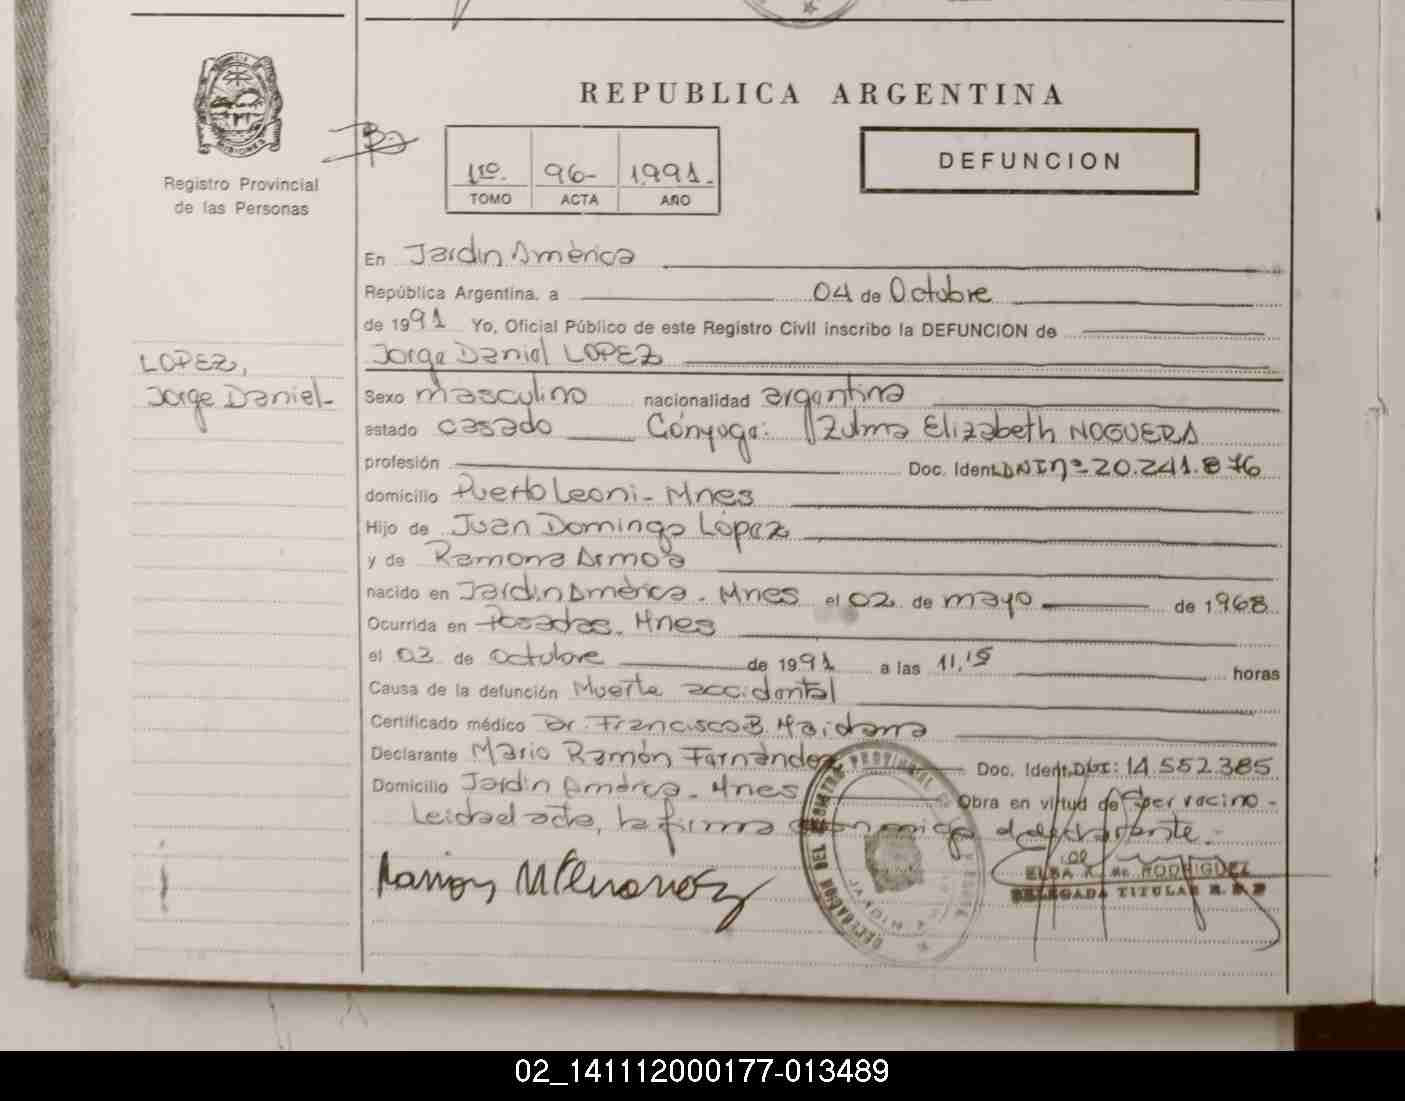 REPUBLICA ARGENTINA
MISIONES
Registro Provincial
de las Personas
1º. 96- 1991.
TOMO ACTA AÑO
DEFUNCION
En Jardín América
República Argentina, a 04 de Octubre
de 1991 Yo, Oficial Público de este Registro Civil inscribo la DEFUNCION de
LOPEZ,
Jorge Daniel-
Jorge Daniel LOPEZ
Sexo masculino nacionalidad argentina
estado casado Cónyuge: Zulma Elizabeth NOGUERA
profesión Doc. Ident. DNI nº 20.241.876
domicilio Puerto Leoni- Mnes
Hijo de Juan Domingo López
y de Ramona Armoa
nacido en Jardín América. Mnes el 02 de mayo de 1968
Ocurrida en Posadas. Mnes
el 03 de octubre de 1991 a las 11,15 horas
Causa de la defunción Muerte accidental
Certificado médico Dr. Francisco B Maidana
Declarante Mario Ramón Fernández Doc. Ident. DNI: 14.552.385
Domicilio Jardín América. Mnes Obra en virtud de ser vecino-
Leida el acta, la firma conmigo el declarante.-
DELEGACION DEL REGISTRO PROVINCIAL DE
ELBA R. de RODRIGUEZ
DELEGADA TITULAR R. P. P
02_141112000177-013489